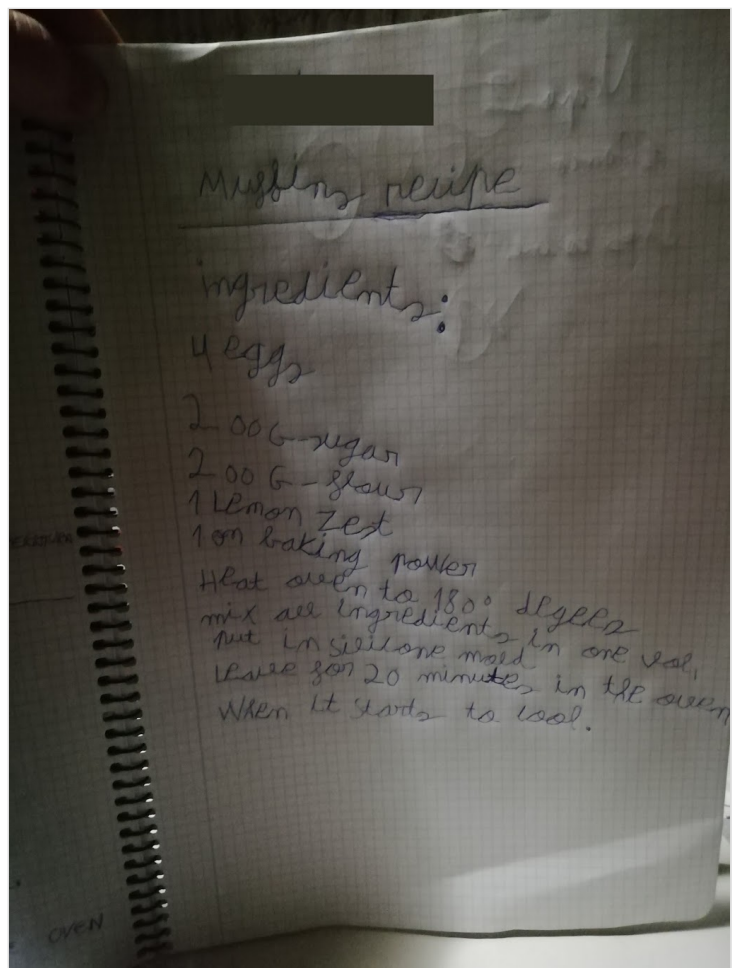 Muffins recipe
ingredients:
4 eggs
200 G-sugar
200 G-flour
1 Lemon Zest
1 on baking power
Heat oven to 180° degees
mix all ingredients in one
put in silicone mold
leave for 20 minutes in the oven
When it starts to cool.
OVEN